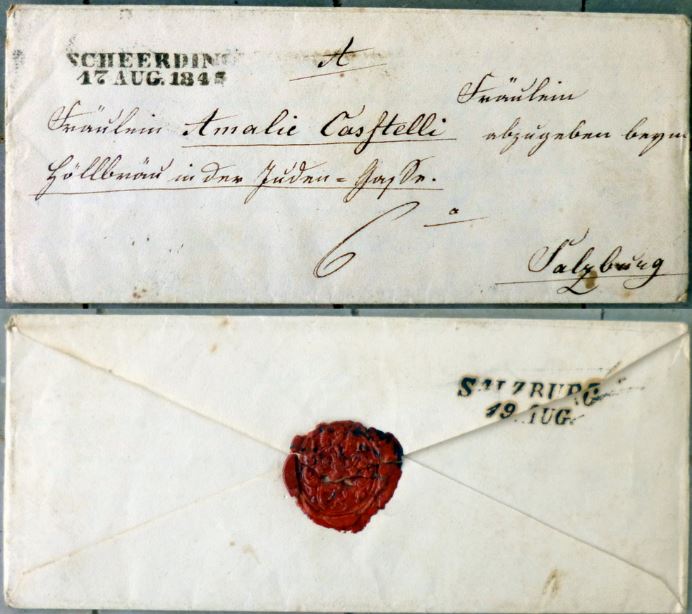 SCHEERDING
17 AUG. 184
A
Fräulein
Fräulein Amalie Casstelli abzugeben beym
Höllbräu in der Juden=Gasse.
6
Salzburg
SALZBURG
19 AUG.